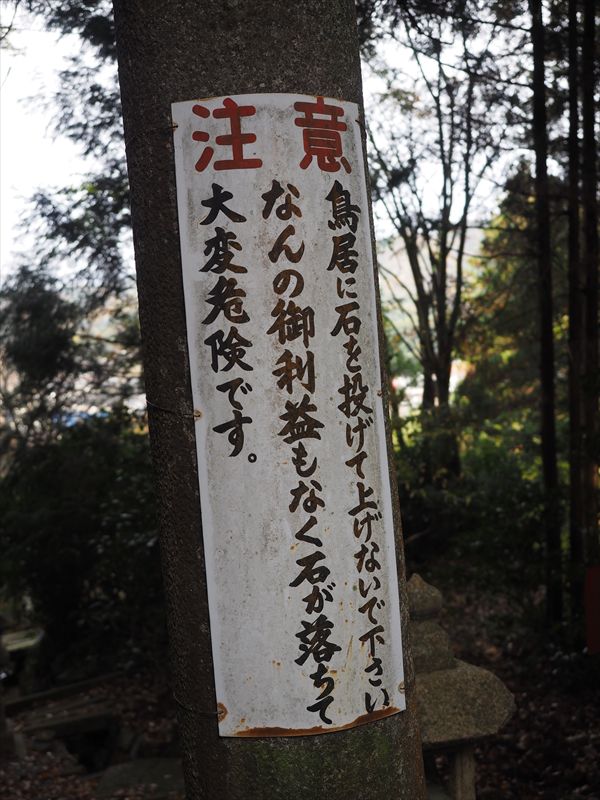 注意
鳥居に石を投げて上げないで下さい
なんの御利益もなく石が落ちて
大変危険です。